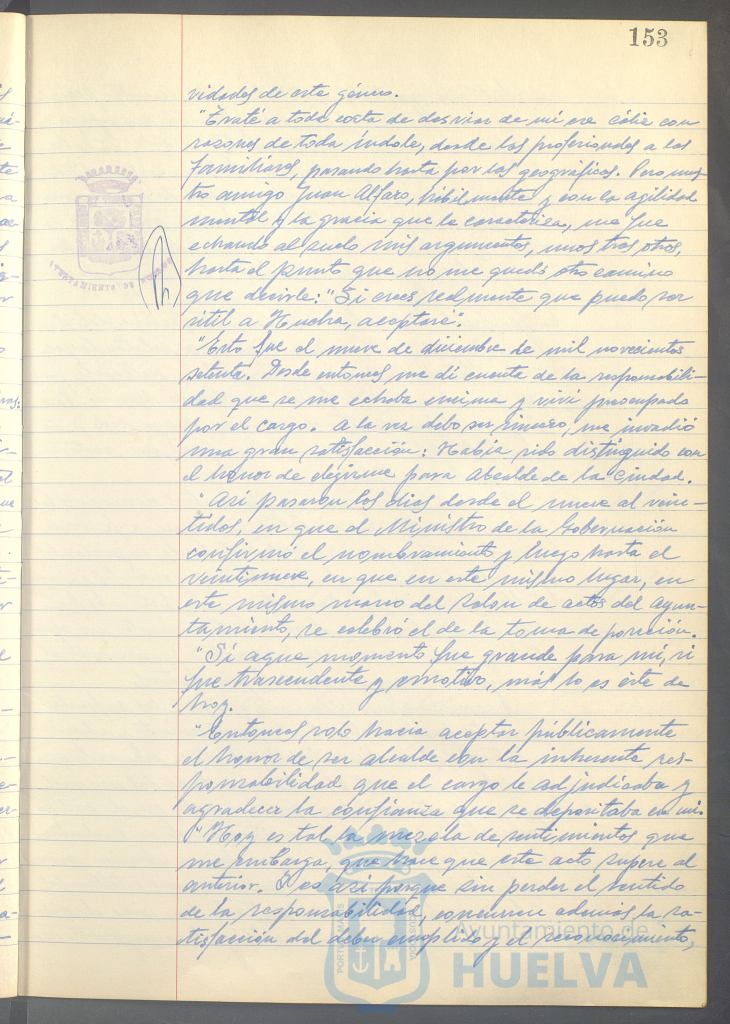 153
vidades de este género.
"Traté a toda costa de desviar de mí ese cáliz con
razones de toda índole, desde las profesionales a las
familiares, pasando hasta por las geográficas. Pero nues-
tro amigo Juan Alfaro, hábilmente y con la agilidad
mental y la gracia que le caracteriza, me fue
echando al suelo mis argumentos, unos tras otros,
hasta el punto que no me quedó otro camino
que decirle: "Si crees realmente que puedo ser
útil a Huelva, aceptaré".
"Esto fue el nueve de diciembre de mil novecientos
setenta. Desde entonces me di cuenta de la responsabili-
dad que se me echaba encima y viví preocupado
por el cargo. A la vez debo ser sincero, me invadió
una gran satisfacción: Había sido distinguido con
el honor de elegirme para Alcalde de la Ciudad.
"Así pasaron los días desde el nueve al vein-
tidos, en que el Ministro de la Gobernación
confirmó el nombramiento y luego hasta el
veintinueve, en que en este mismo lugar, en
este mismo marco del salon de actos del ayun-
tamiento, se celebró el de la toma de posesión.
"Si aque momento fue grande para mí, si
fue trascendente y emotivo, más lo es éste de
hoy.
"Entonces solo hacía aceptar públicamente
el honor de ser alcalde con la inherente res-
ponsabilidad que el cargo le adjudicaba y
agradecer la confianza que se depositaba en mi.
"Hoy es tal la mezcla de sentimientos que
me embarga, que hace que este acto supere al
anterior. Y es así porque sin perder el sentido
de la responsabilidad, concurren además la sa-
tisfacción del deber cumplido y el reconocimiento,
Ayuntamiento de
HUELVA